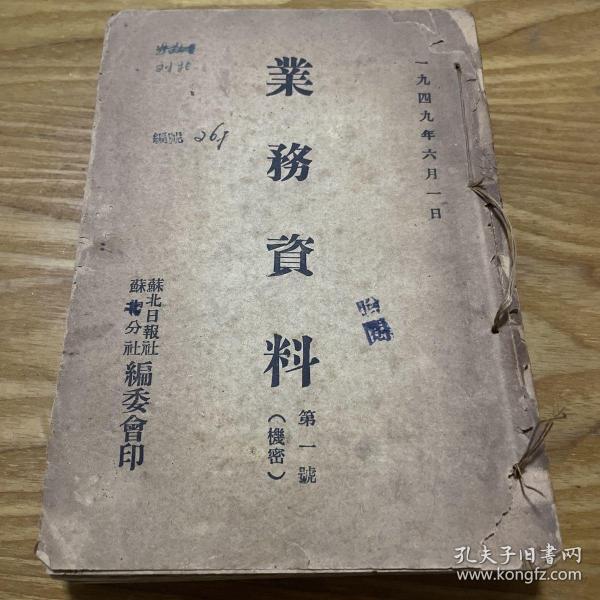 一九四九年六月一日
業務資料
第一號
(機密)
編號 261
蘇北日報社
蘇北分社
編委會印
孔夫子旧书网
www.kongfz.com